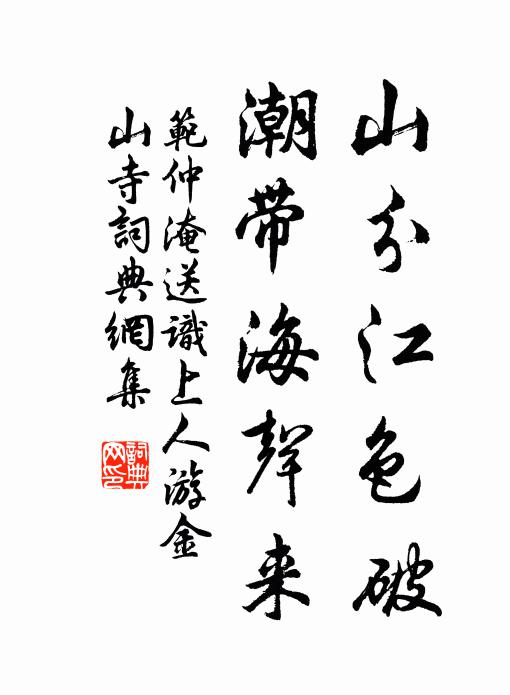 山分江色破
潮带海聲来
範仲淹送識上人游金
山寺詞典網集
詞典
网印